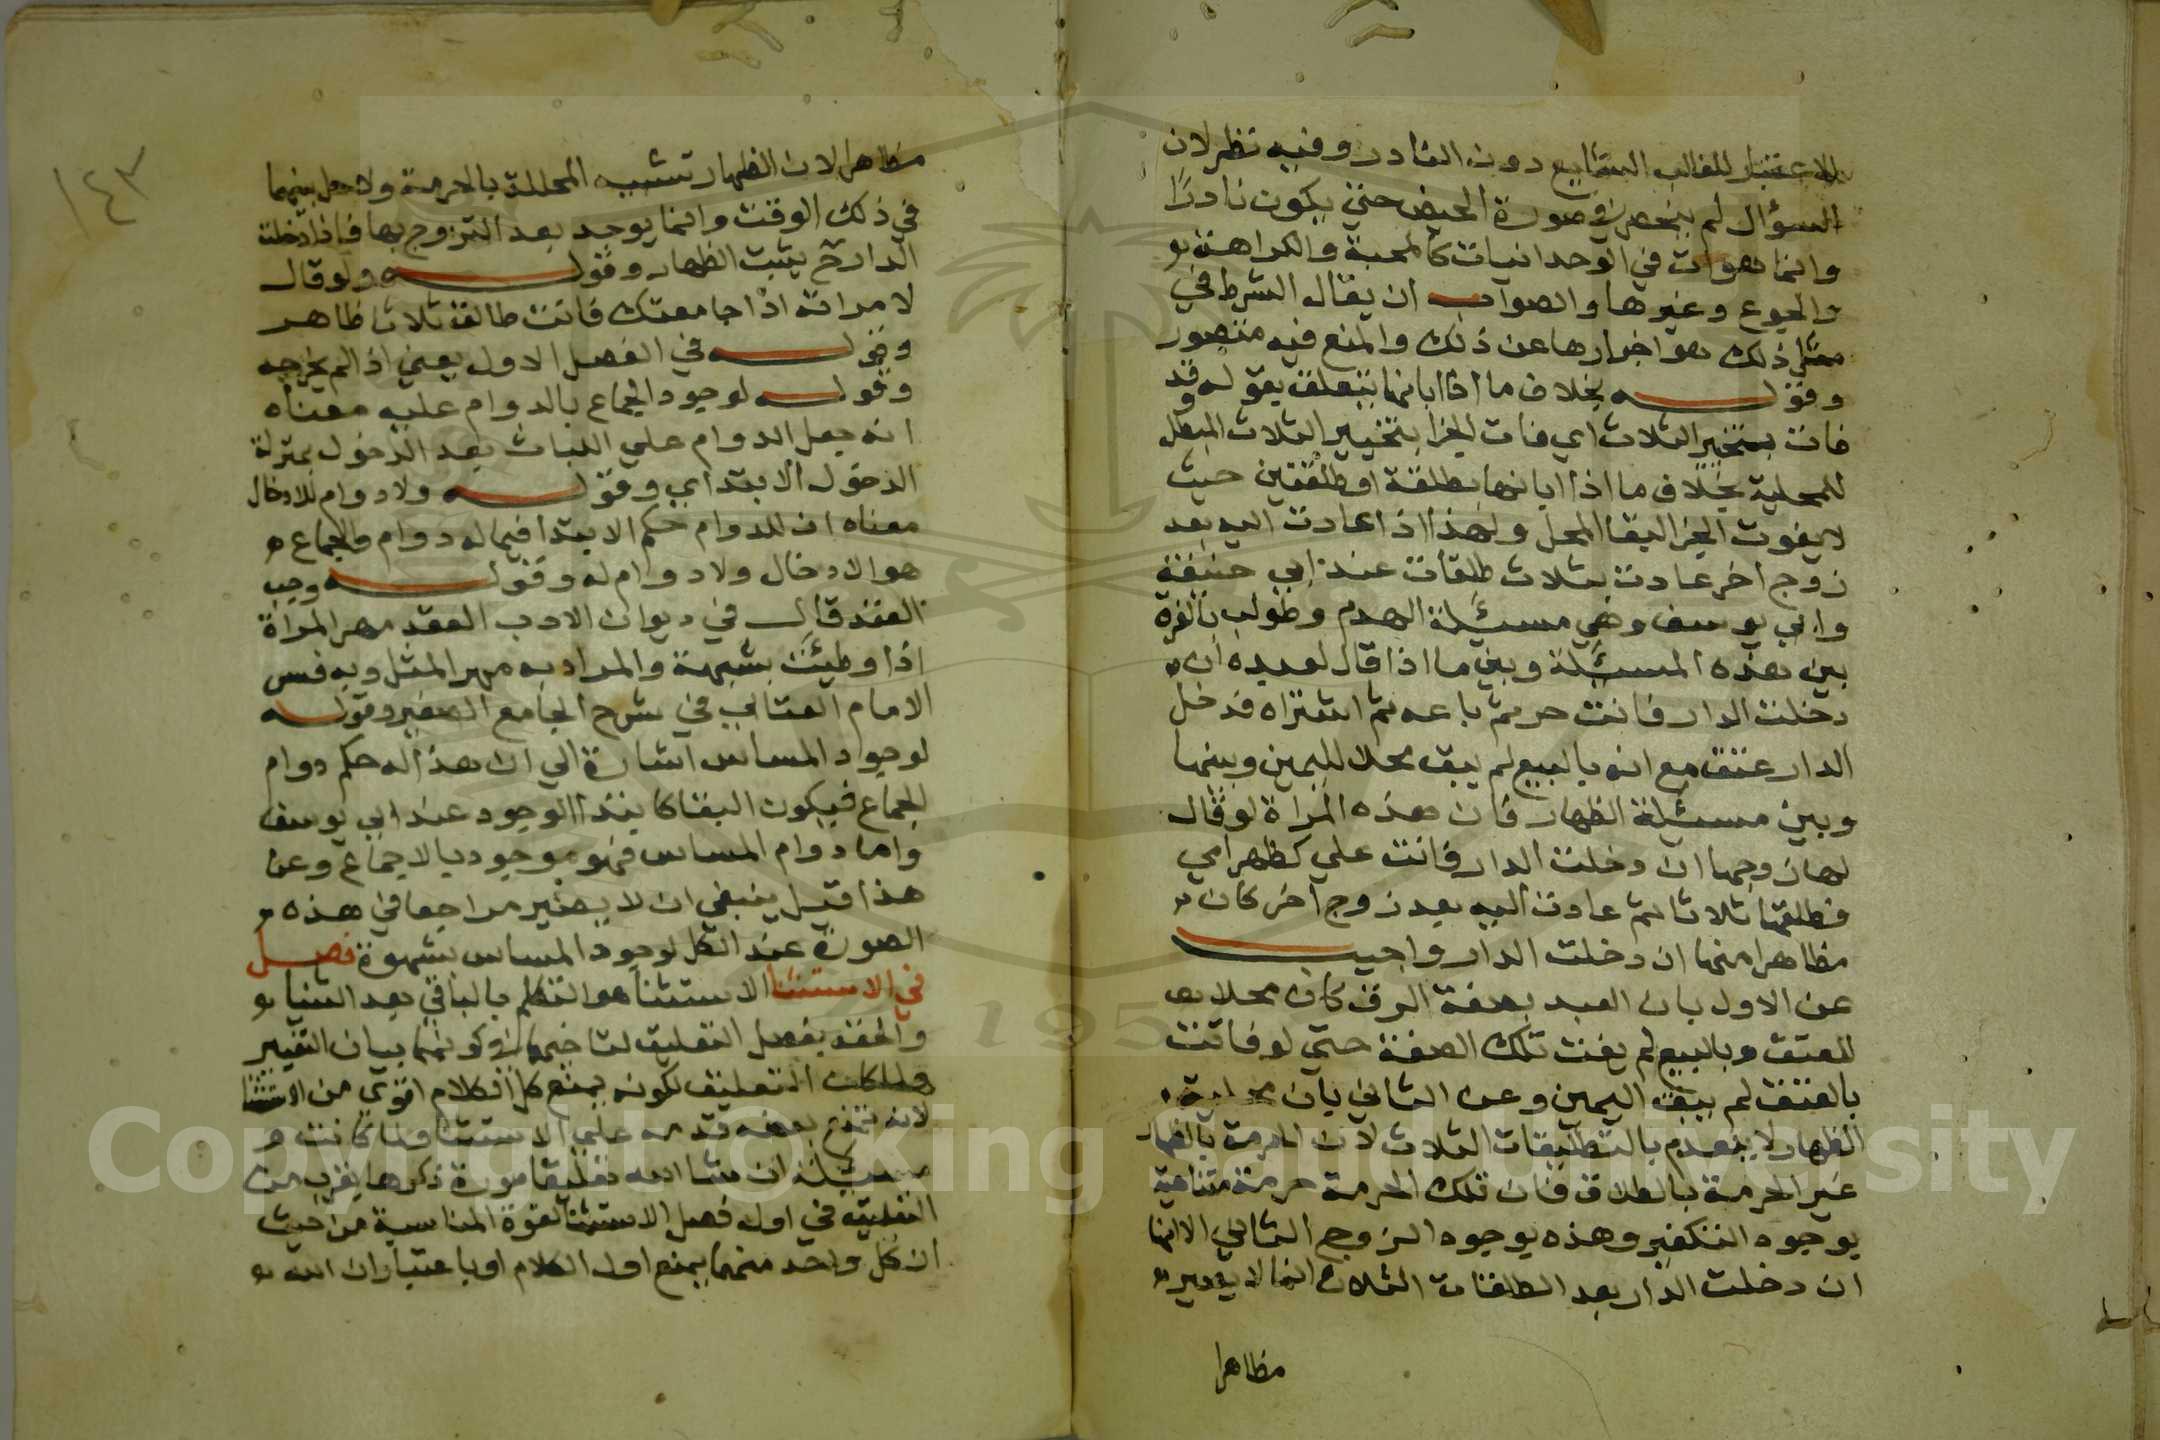 الاعتبار للغالب الشايع دون النادر وفيه نظر لان
السؤال لم ينحصر في صورة الحيض حتى يكون نادرا
وانما هو ات في الوجدانيات كالمحبة والكراهة
والجوع وغيرها والصواب ان يقال الشرط في
مثل ذلك هو اخبارها عن ذلك والمنع فيه متصور
وقوله بخلاف ما اذا ابانها يتعلق بقوله وقد
فات بتنجيز الثلاث اي فات الجزا بتنجيز الثلاث المبطل
للمحلية بخلاف ما اذا ابانها بطلقة او طلقتين حيث
لا يفوت الجزا لبقا المحل ولهذا اذا عادت اليه بعد
زوج اخر عادت بثلاث طلقات عند ابي حنيفة
وابي يوسف وهي مسئلة الهدم وطولب بالفرق
بين هذه المسئلة وبين ما اذا قال لعبده ان
دخلت الدار فانت حر ثم باعه ثم اشتراه فدخل
الدار عتق مع انه بالبيع لم يبق محلا لليمين وبينها
وبين مسئلة الظهار فان هذه المراة لو قال
لها زوجها ان دخلت الدار فانت علي كظهر امي
فطلقها ثلاثا ثم عادت اليه بعد زوج اخر كان
مظاهرا منها ان دخلت الدار واجيب
عن الاول بان العبد بصفة الرق كان محلا
للعتق وبالبيع لم يفت تلك الصفة حتى لو فاتت
بالعتق لم يبق اليمين وعن الثاني بان محلية
الظهار لا ينعدم بالتطليقات الثلاث لان الحرمة بالظهار
غير الحرمة بالطلاق فان تلك الحرمة حرمة متناهية
بوجود التكفير وهذه بوجود الزوج الثاني الا انها
ان دخلت الدار بعد الطلقات الثلاث انما لا يصير
مظاهرا
١٤٣
مظاهرا لان الظهار تشبيه المحللة بالحرمة ولا حل بينهما
في ذلك الوقت وانما يوجد بعد التزوج بها فاذا دخلت
الدار ح يثبت الظهار وقوله ولو قال
لامراته اذا جامعتك فانت طالق ثلاثا ظاهر
وقوله في الفصل الاول يعني اذا لم يخرجه
وقوله لوجود الجماع بالدوام عليه معناه
انه جعل الدوام على اللباث بعد الدخول بمنزلة
الدخول الابتداي وقوله ولا دوام للادخال
معناه ان للدوام حكم الابتدا فيما له دوام والجماع
هو الادخال ولا دوام له وقوله وجب
العقد قال في ديوان الادب العقر مهر المراة
اذا وطئت بشبهة والمراد به مهر المثل وبه فسر
الامام العتابي في شرح الجامع الصغير وقوله
لوجود المساس اشارة الى ان هذا له حكم دوام
الجماع فيكون البقا كابتدا الوجود عند ابي يوسف
واما دوام المساس فهو موجود بالاجماع وعن
هذا قيل ينبغي ان لا يصير مراجعا في هذه
الصورة عند الكل لوجود المساس بشهوة فصل
في الاستثنا الاستثنا هو التكلم بالباقي بعد الثنيا
والحقه بفصل التعليق لتاخيهما في كونهما بيان التغيير
ولما كان التعليق لكونه يمنع كل الكلام اقوى من الاستثنا
لانه يمنع بعضه قدمه على الاستثنا ولما كانت
مسئلة ان شا الله تعليقا صورة ذكرها بقرب من
التعليق في اول فصل الاستثنا لقوة المناسبة من حيث
ان كل واحد منهما يمنع اول الكلام او باعتبار ان الله
Copyright © King Saud University
195